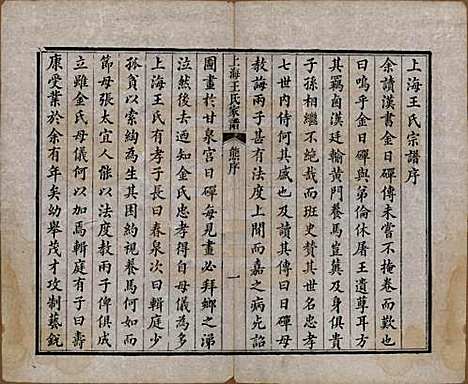 上海王氏宗譜序
余讀漢書金日磾傳未嘗不掩卷而歎也
曰嗚乎金日磾與弟倫休屠王遺尊耳方
其羈鹵漢廷輸黃門養馬豈冀及身俱貴
子孫相繼不絶哉而班史贊其世名忠孝
七世內侍何其盛也及讀其傳曰日磾母
教誨兩子甚有法度上聞而嘉之病死詔
上海王氏家譜
熊序
一
圖畫於甘泉宮日磾每見畫必拜鄉之涕
泣然後去迺知金氏忠孝得自母教為多
上海王氏有孝子長曰春泉次曰輯庭少
孤貧以索綯為活其困約視養馬何如而
節母張太宜人能以法度教兩子俾俱成
立雖金氏母儀何以加焉輯庭有子曰壽
康受業於余有年矣幼舉茂才攻制藝銳